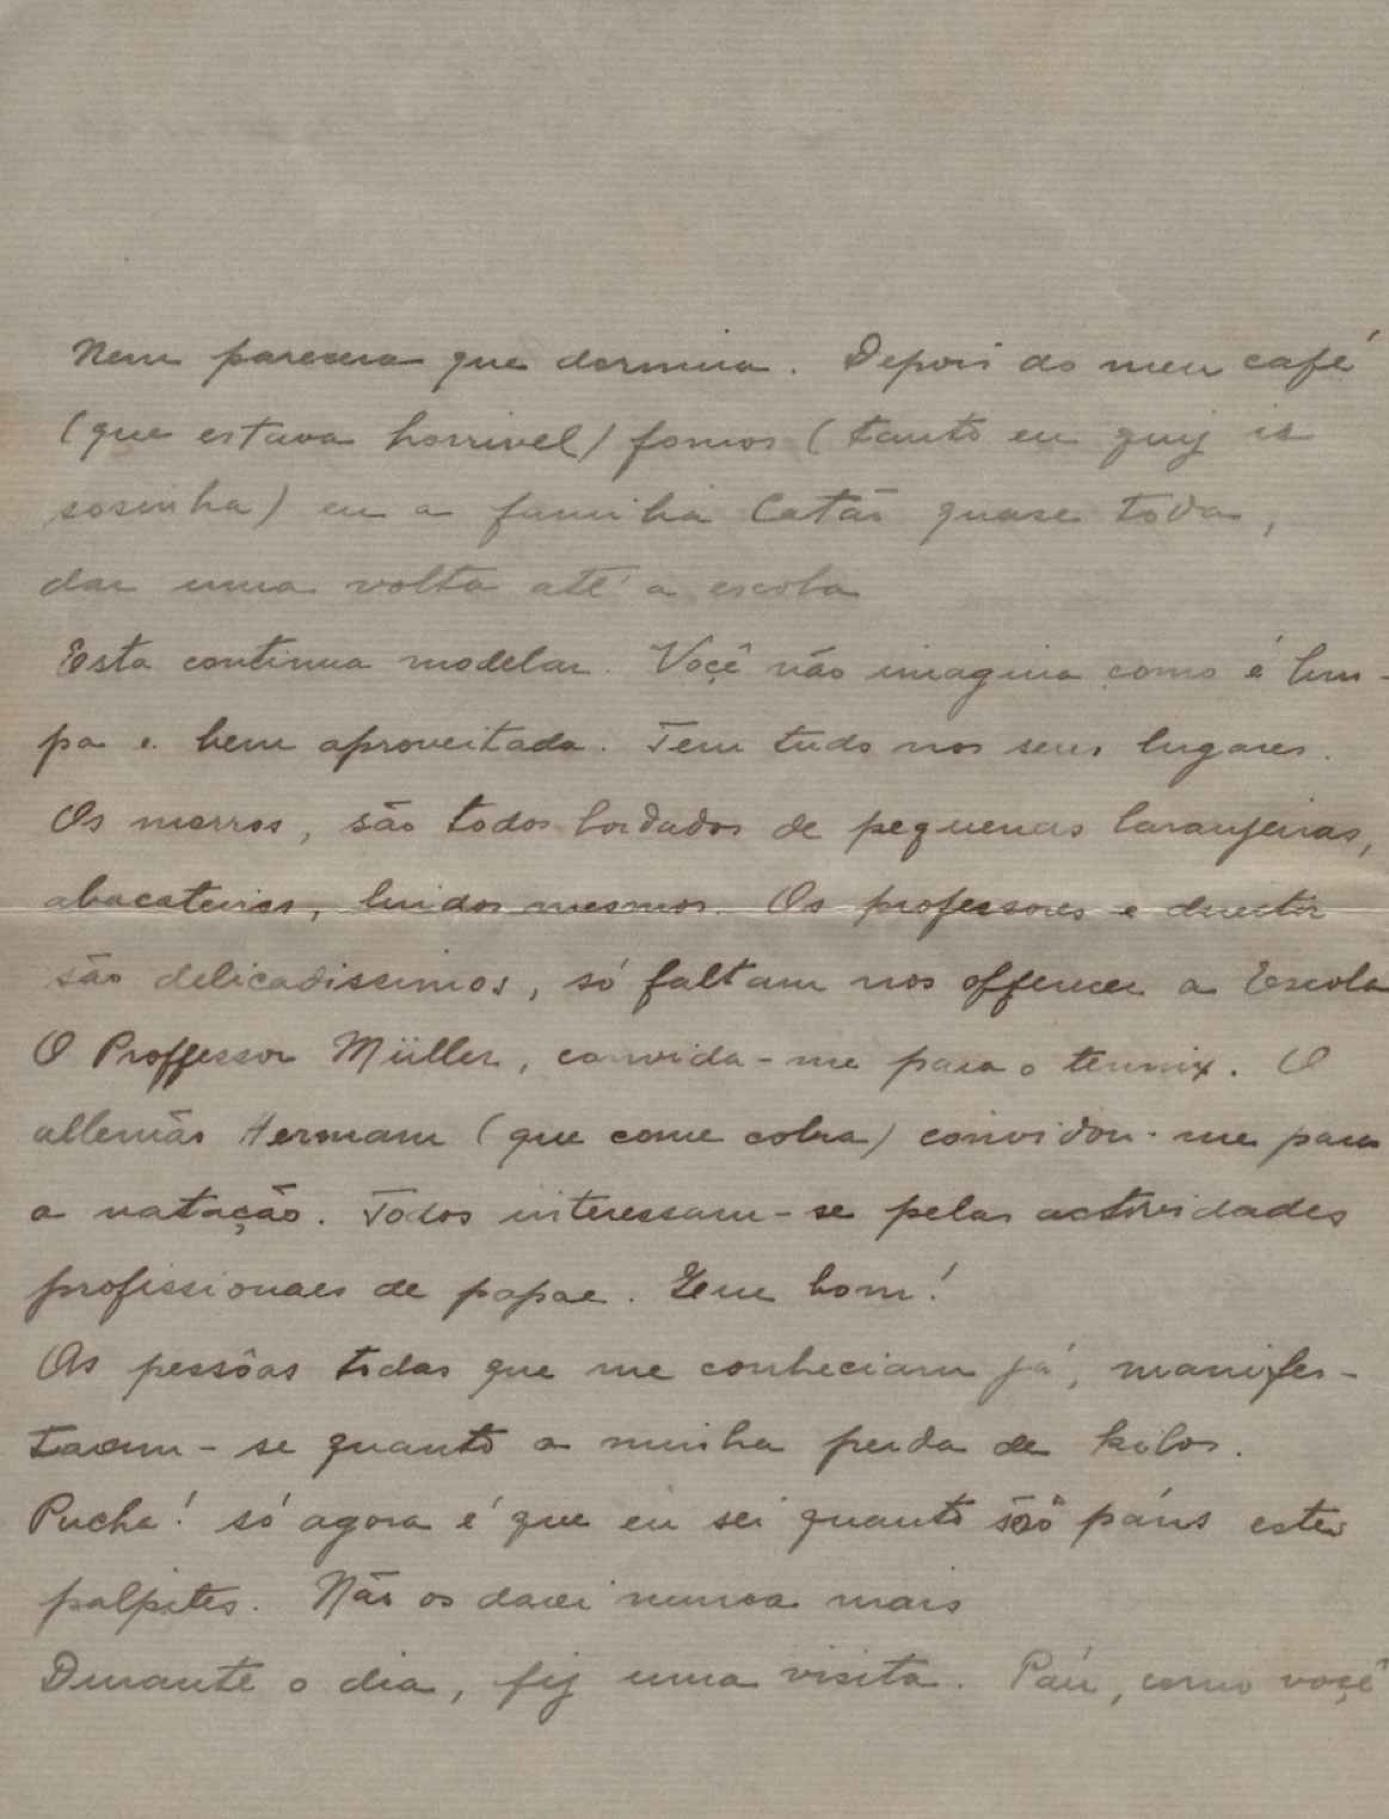 Nem parecia que dormia. Depois do meu café
(que estava horrivel) fomos (tanto eu quiz ir
sosinha) eu a familia Catão quase toda,
dar uma volta até a escola
Esta continua modelar. Voçê não imagina como é lim-
pa e bem aproveitada. Tem tudo nos seus lugares.
Os morros, são todos bordados de pequenas laranjeiras,
abacateiros, lindos mesmos. Os professores e director
são delicadissimos, só faltam nos offerecer a Escola
O Proffessor Müller, convida-me para o tennix. O
allemão Hermann (que come cobra) convidou-me para
a natação. Todos interessam-se pelas actividades
profissionaes de papae. Bem bom!
As pessôas todas que me conheciam já, manifes-
taram-se quanto a minha perda de kilos.
Pucha! só agora é que eu sei quanto são páus estes
palpites. Não os darei nunca mais
Durante o dia, fiz uma visita. Páu, como voçê